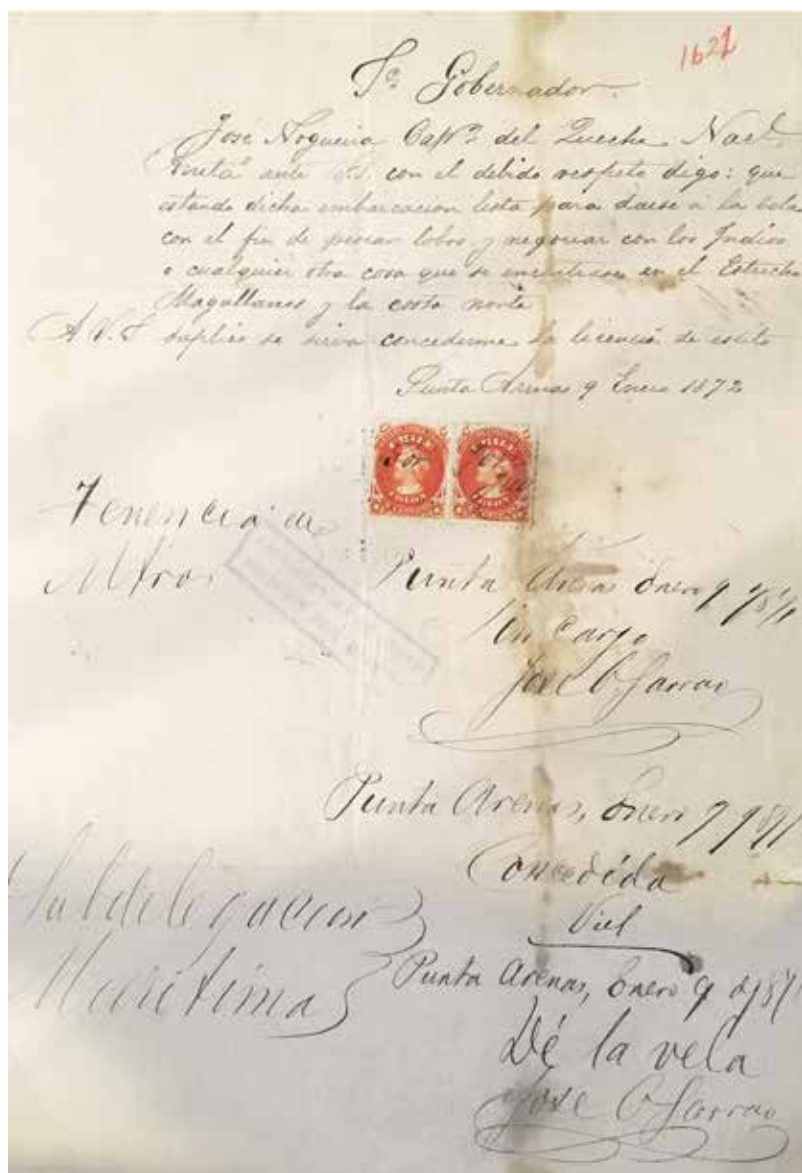 162
S.ᵒʳ Gobernador.
José Nogueira Capⁿ del Queche Nacl.
ante V.S. con el debido respeto digo: que
estando dicha embarcacion lista para darse a la vela
con el fin de pescar lobos y negociar con los Indios
o cualquier otra cosa que se encontrase en el Estrecho
Magallanes y la costa norte
A V.S suplico se sirva concederme la licencia de estilo
Punta Arenas 9 Enero 1872
Tenencia de
Mtros
Punta Arenas Enero 9
Sin cargo
José
Punta Arenas, Enero 9
Concedida
Viel
Subdelegacion
Maritima
Punta Arenas, Enero 9 de
Dé la vela
José